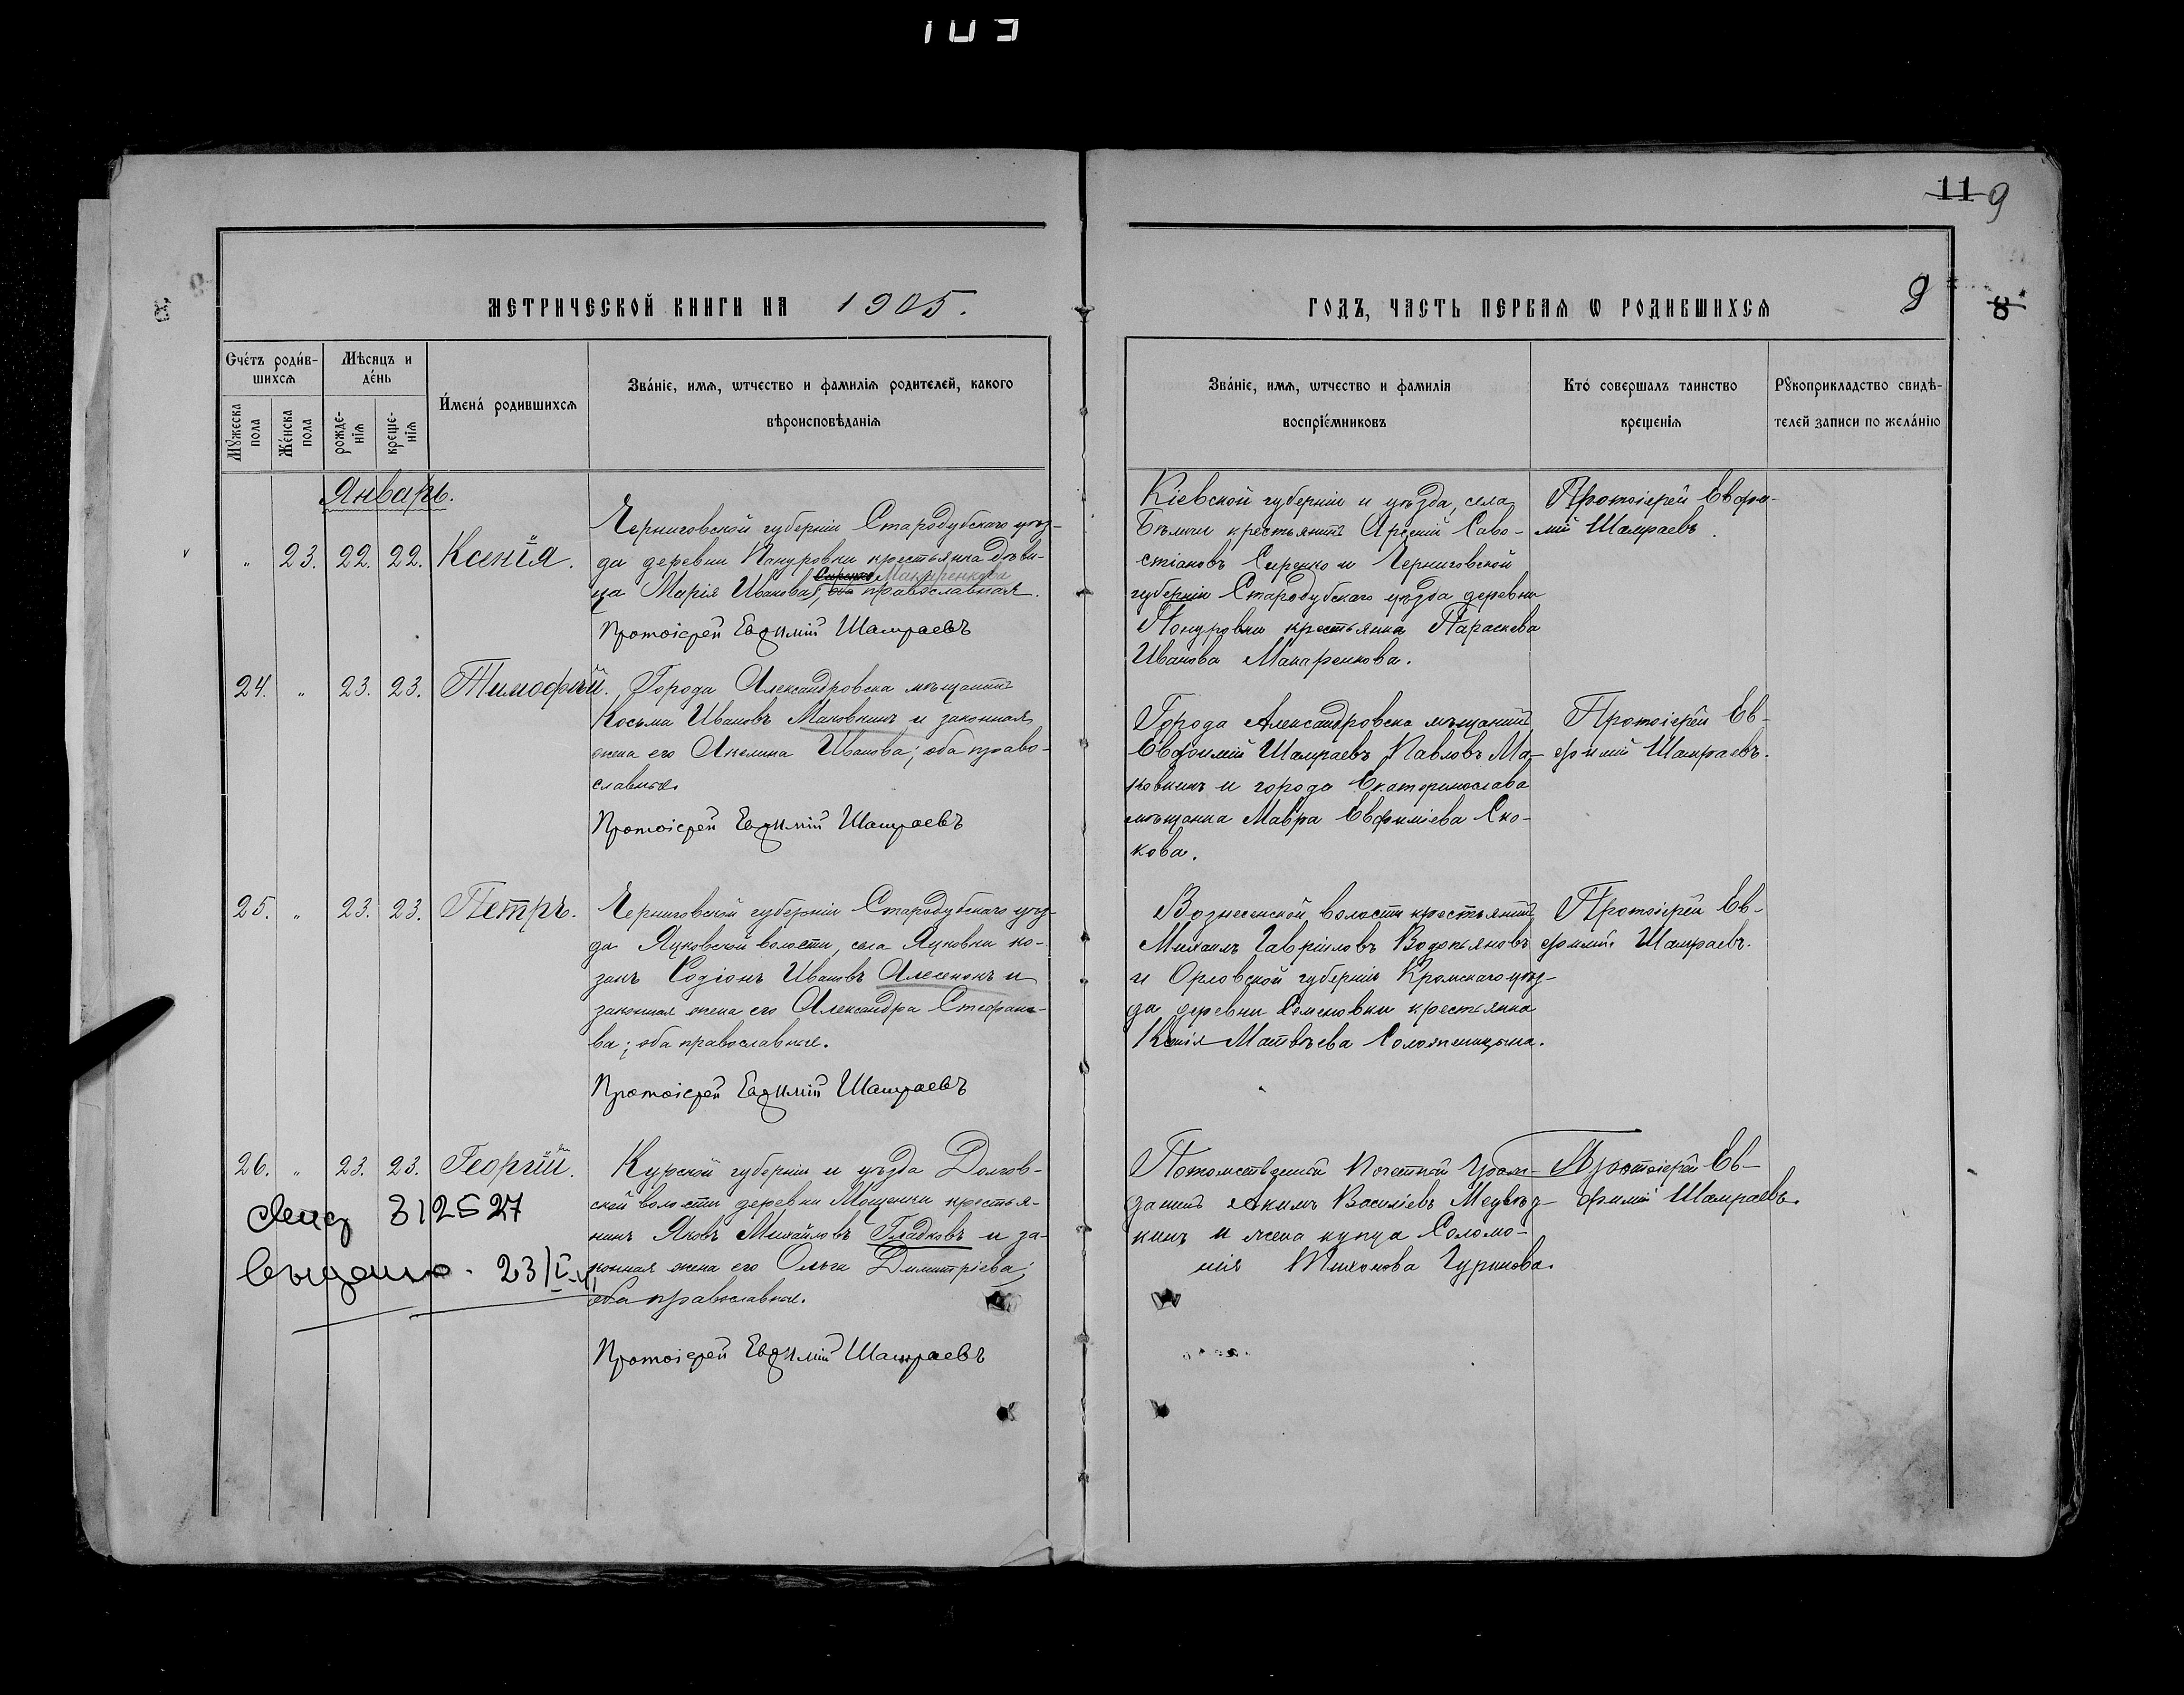 103
11 9
МЕТРИЧЕСКОЙ КНИГИ НА 1905.
ГОДЪ, ЧАСТЬ ПЕРВАЯ Ѡ РОДИВШИХСЯ 9 8
Счéтъ роди́в-
шихсѧ
Мѣсяцъ и
де́нь
И́мена́ родившихсѧ
Зва́нїе, имѧ, ѡтчество и фамилїѧ родителей, какого
вѣроисповѣданїѧ
Мꙋжеска
пола
Же́нска
пола
рожде-
нїѧ
креще-
нїѧ
Зва́нїе, имѧ, ѡтчество и фамилїѧ
воспрїе́мниковъ
Кто́ совершалъ таинство
крещенїѧ
Рꙋкоприкладство свидѣ-
телей записи по жела́нїю
Январь.
„ 23. 22. 22. Ксенія.
Черниговской губерніи Стародубскаго уѣз-
да деревни Понуровки крестьянка дѣви-
Макаренкова
ца Марія Иванова, православная.
Протоіерей Евѳимій Шамраевъ
Кіевской губерніи и уѣзда, села
крестьянинъ Арсеній Саво-
стіановъ Сиренко и Черниговской
губерніи Стародубскаго уѣзда деревни
Понуровки крестьянка Параскева
Иванова Макаренкова.
Протоіерей Евфи-
мій Шамраевъ.
24. „ 23. 23. Тимофѣй.
Города Александровска мѣщанинъ
Косьма Ивановъ Маковкинъ и законная
жена его Акилина Иванова; оба право-
славные.
Протоіерей Евѳимій Шамраевъ
Города Александровска мѣщанинъ
Евфимій Шамраевъ Павловъ Ма-
ковкинъ и города Екатеринослава
мѣщанка Мавра Евфиміева Ско-
кова.
Протоіерей Ев-
фимій Шамраевъ.
25. „ 23. 23. Петръ.
Черниговской губерніи Стародубскаго уѣз-
да Яцковской волости, села Яцковки ко-
закъ Родіонъ Ивановъ Алесенокъ и
законная жена его Александра Стефано-
ва; оба православные.
Протоіерей Евѳимій Шамраевъ
Вознесенской волости крестьянинъ
Михаилъ Гавріиловъ Водопьяновъ
и Орловской губерніи Кромскаго уѣз-
да деревни Семеновки крестьянка
Ксенія Матвѣева Соложеницына.
Протоіерей Ев-
фимій Шамраевъ.
26. „ 23. 23. Георгій.
Курской губерніи и уѣзда Долгов-
ской волости деревни Мощенки крестья-
нинъ Яковъ Михайловъ Гладковъ и за-
конная жена его Ольга Димитріева;
оба православные.
Протоіерей Евѳимій Шамраевъ
312527
23/
Потомственный Почетный Граж-
данинъ Акимъ Васильевъ Медвѣд-
кинъ и жена купца Соломо-
нія Тихонова Гуринова.
Протоіерей Ев-
фимій Шамраевъ.